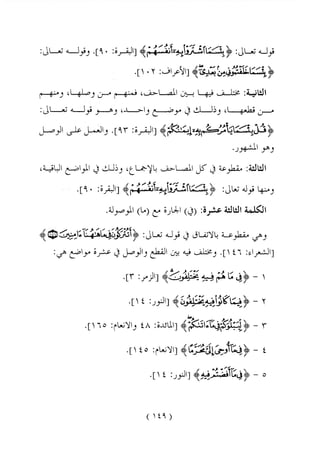 قوله تعالى: ﴿بِئْسَمَا اشْتَرَوْا بِهِ أَنْفُسَهُمْ﴾ [البقرة: ٩٠]. وقوله تعالى:
﴿بِئْسَمَا خَلَفْتُمُونِي مِنْ بَعْدِي﴾ [الأعراف: ١٥٢].
الثانية: مختلف فيها بين المصاحف، فمنهم من وصلها، ومنهم
من قطعها، وذلك في موضع واحد، وهو قوله تعالى:
﴿قُلْ بِئْسَمَا يَأْمُرُكُمْ بِهِ إِيمَانُكُمْ﴾ [البقرة: ٩٣]. والعمل على الوصل
وهو المشهور.
الثالثة: مقطوعة في كل المصاحف بالإجماع، وذلك في المواضع الباقية،
ومنها قوله تعالى: ﴿بِئْسَمَا اشْتَرَوْا بِهِ أَنْفُسَهُمْ﴾ [البقرة: ٩٠].
الكلمة الثالثة عشرة: (في) الجارة مع (ما) الموصولة.
وهي مقطوعة بالاتفاق في قوله تعالى: ﴿أَتُتْرَكُونَ فِي مَا هَاهُنَا آمِنِينَ﴾
[الشعراء: ١٤٦]. ومختلف فيه بين القطع والوصل في عشرة مواضع هي:
١ - ﴿فِي مَا هُمْ فِيهِ يَخْتَلِفُونَ﴾ [الزمر: ٣].
٢ - ﴿فِيمَا كَانُوا فِيهِ يَخْتَلِفُونَ﴾ [الزمر: ٤٦].
٣ - ﴿لِيَبْلُوَكُمْ فِي مَا آتَاكُمْ﴾ [المائدة: ٤٨ والأنعام: ١٦٥].
٤ - ﴿فِي مَا أُوحِيَ إِلَيَّ مُحَرَّمًا﴾ [الأنعام: ١٤٥].
٥ - ﴿فِي مَا أَفَضْتُمْ فِيهِ﴾ [النور: ١٤].
(١٤٩)